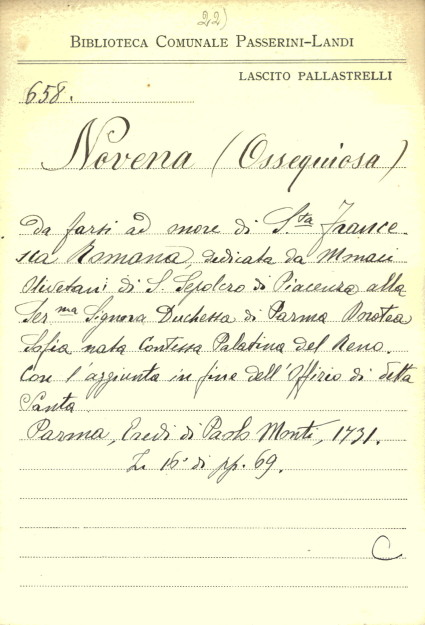 22)
BIBLIOTECA COMUNALE PASSERINI-LANDI
LASCITO PALLASTRELLI
658.
Novena (Ossequiosa)
da farsi ad onore di S.ta France-
sca Romana, dedicata da Monaci
Olivetani di S. Sepolcro di Piacenza alla
Ser.ma Signora Duchessa di Parma Dorotea
Sofia nata Contessa Palatina del Reno.
Con l'aggiunta in fine dell'Offizio di detta
Santa.
Parma, Eredi di Paolo Monti, 1731.
In 16° di pp. 69.
C